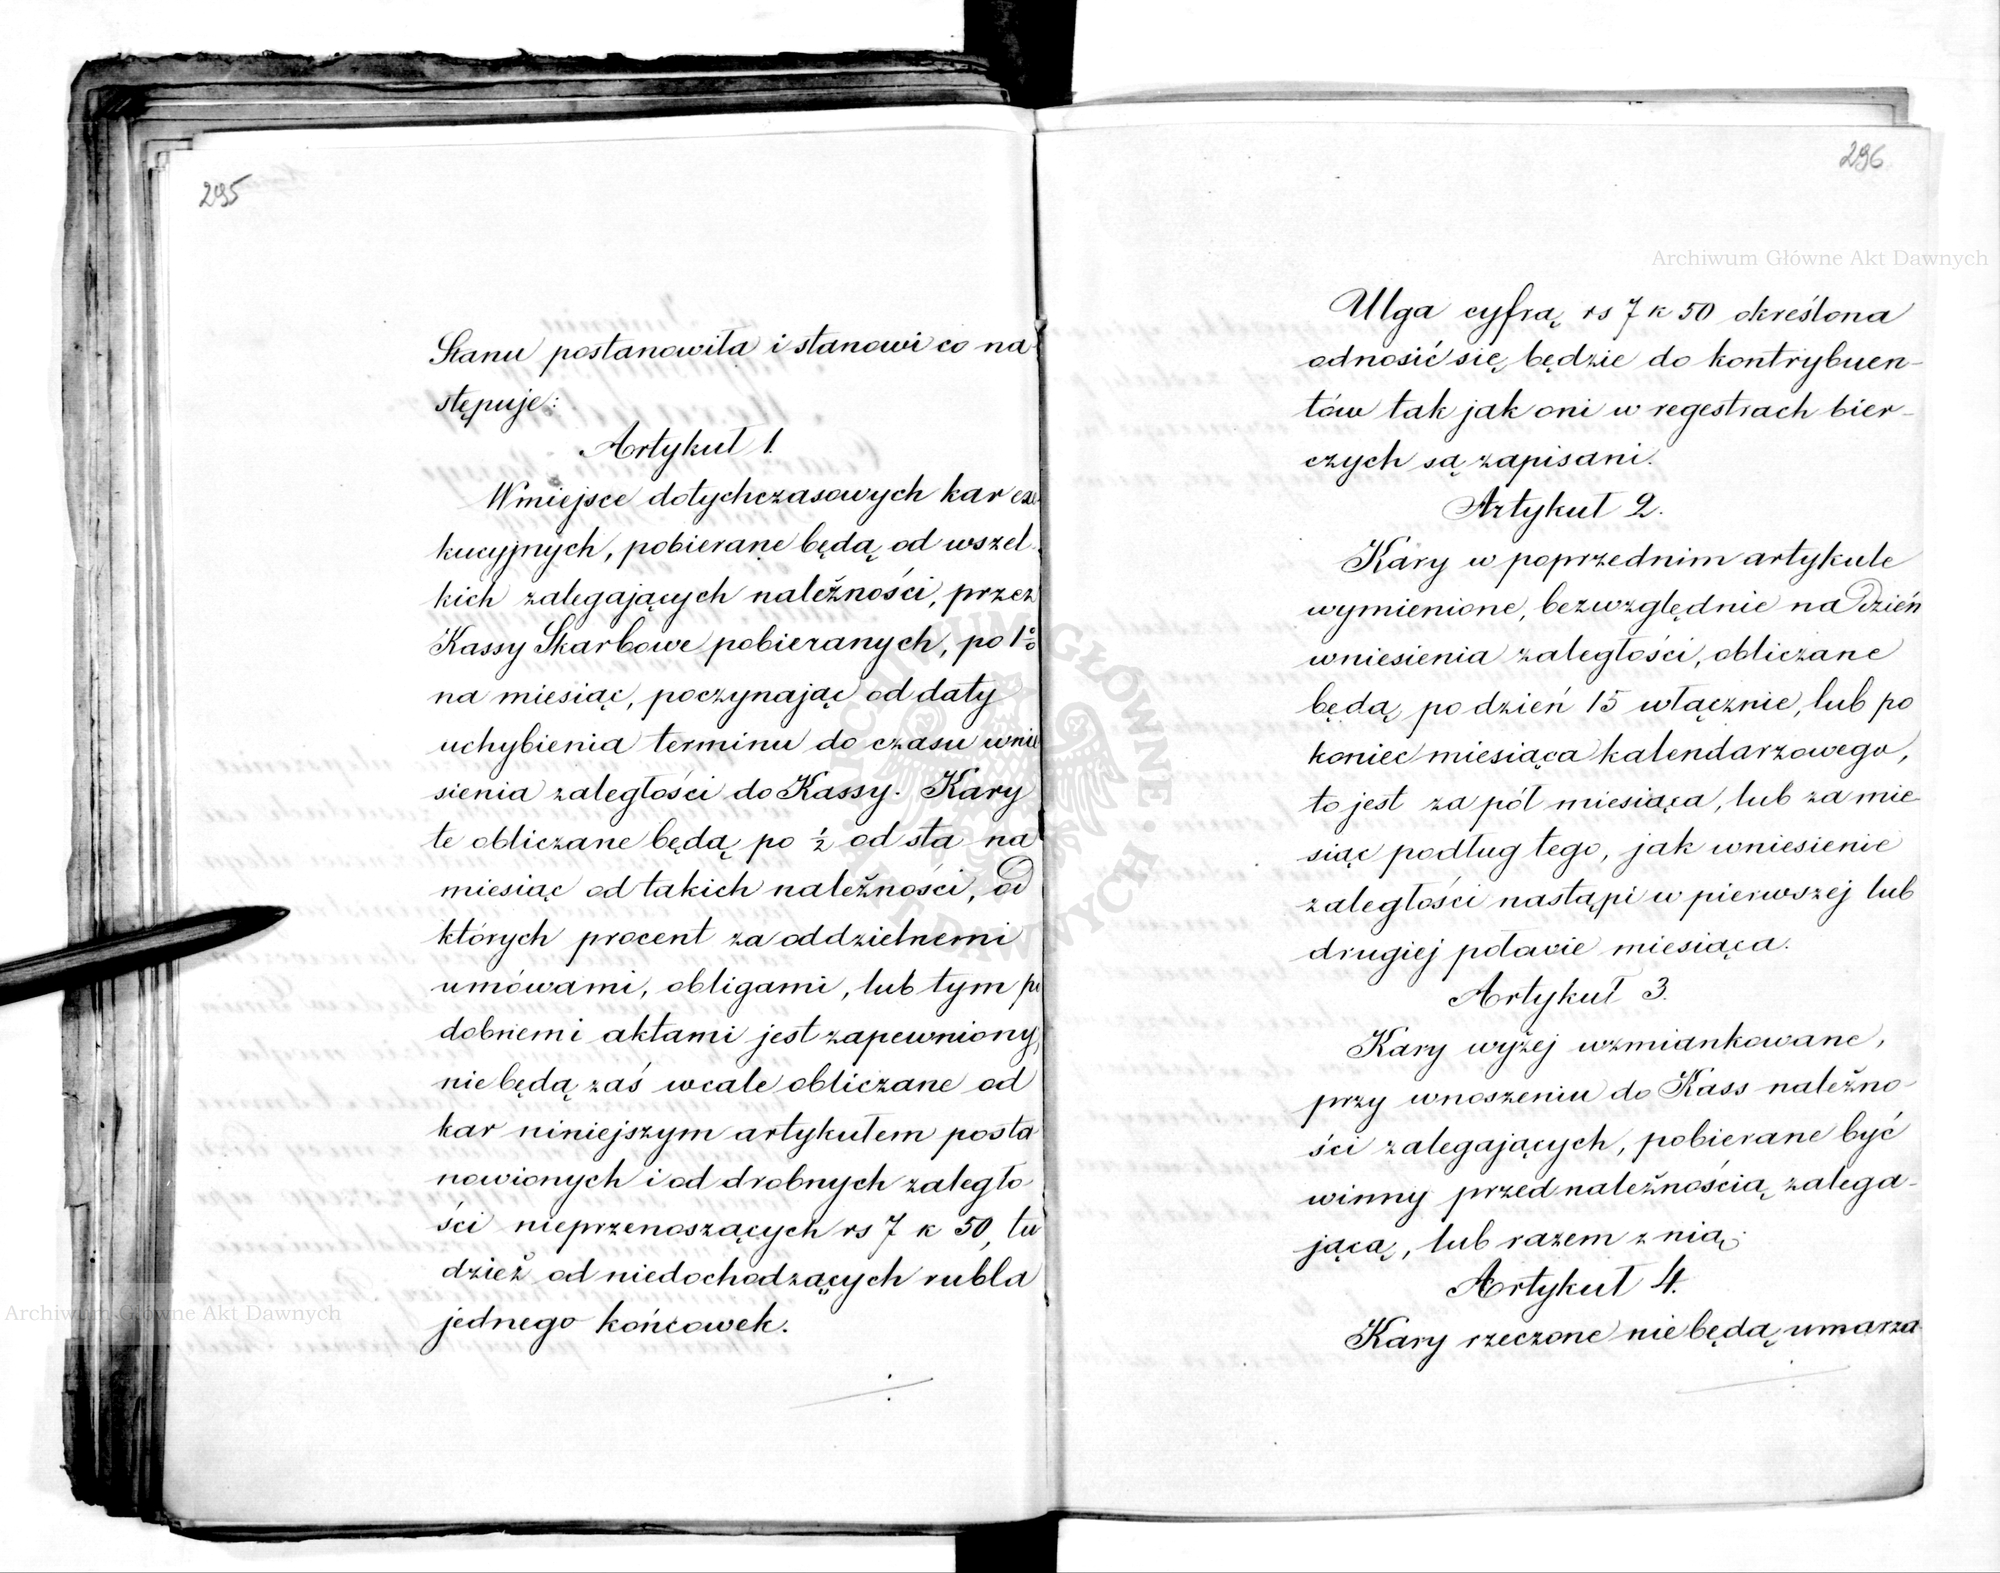 295
Stanu postanowiła i stanowi co na
stępuje:
Artykuł 1.
W miejsce dotychczasowych kar exe
kucyjnych, pobierane będą od wszel
kich zalegających należności, przez
Kassy Skarbowe pobieranych, po 1%
na miesiąc, poczynając od daty
uchybienia terminu do czasu wnie
sienia zaległości do Kassy. Kary
te obliczane będą po ½ od sta na
miesiąc od takich należności, od
których procent za oddzielnemi
umówami, obligami, lub tym po
dobnemi aktami jest zapewniony,
nie będą zaś wcale obliczane od
kar niniejszym artykułem posta
nowionych i od drobnych zaległo
ści nieprzenoszących rs 7 k 50, tu
dzież od niedochodzących rubla
jednego końcowek.
296
Ulga cyfrą rs 7 k 50 określona
odnosić się będzie do kontrybuen-
tów tak jak oni w regestrach bier-
czych są zapisani.
Artykuł 2.
Kary w poprzednim artykule
wymienione, bezwzględnie na dzień
wniesienia zaległości, obliczane
będą po dzień 15 włącznie, lub po
koniec miesiąca kalendarzowego,
to jest za pół miesiąca, lub za mie-
siąc podług tego, jak wniesienie
zaległości nastąpi w pierwszej lub
drugiej połowie miesiąca.
Artykuł 3.
Kary wyżej wzmiankowane,
przy wnoszeniu do Kass należno-
ści zalegających, pobierane być
winny przed należnością zalega-
jącą, lub razem z nią.
Artykuł 4.
Kary rzeczone nie będą umarza
Archiwum Główne Akt Dawnych
Archiwum Główne Akt Dawnych
ARCHIWUM GŁÓWNE AKT DAWNYCH